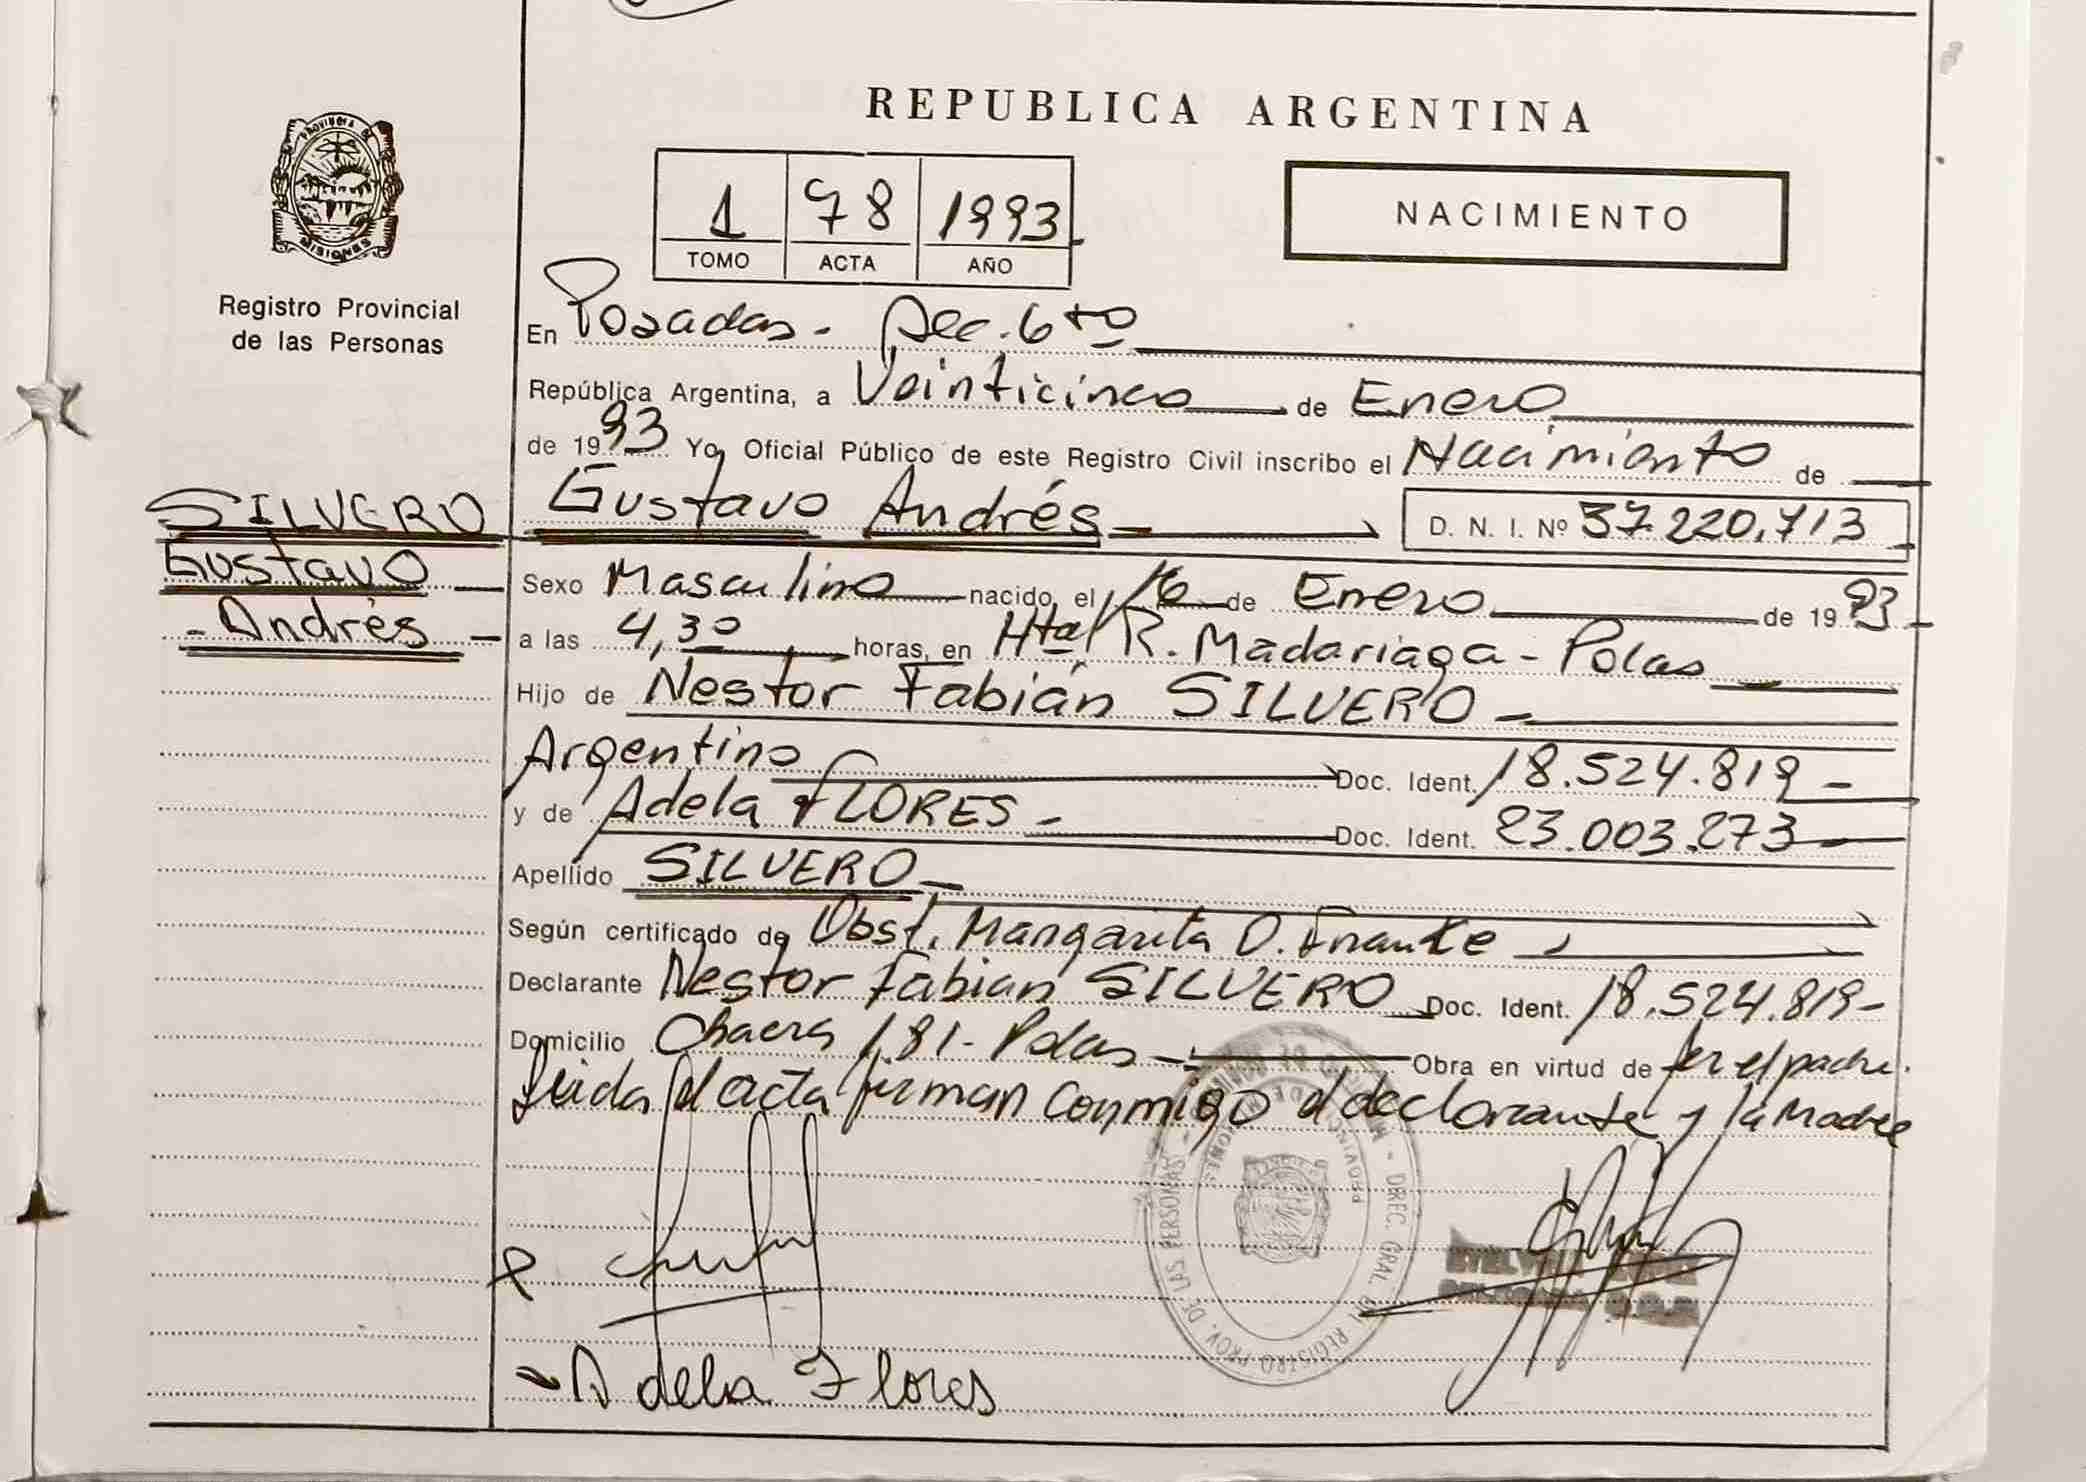 REPUBLICA ARGENTINA
PROVINCIA DE MISIONES
1 78 1993
TOMO ACTA AÑO
NACIMIENTO
Registro Provincial
de las Personas
En Posadas - Sec. 6to
República Argentina, a Veinticinco de Enero
de 1993 Yo, Oficial Público de este Registro Civil inscribo el Nacimiento de
SILVERO
Gustavo
- Andrés -
Gustavo Andrés - D. N. I. Nº 37.220.713
Sexo Masculino nacido el 16 de Enero de 1993
a las 4,30 horas, en Htal R. Madariaga - Pdas
Hijo de Nestor Fabián SILVERO -
Argentino Doc. Ident. 18.524.819 -
y de Adela FLORES - Doc. Ident. 23.003.273
Apellido SILVERO -
Según certificado de Obst. Margarita D.
Declarante Nestor Fabian SILVERO Doc. Ident. 18.524.819-
Domicilio Chacra 181 - Pdas - Obra en virtud de ser el padre.
Leida el acta firman conmigo el declarante y la Madre
DIREC. GRAL. DEL REGISTRO PROV. DE LAS PERSONAS
PROVINCIA DE MISIONES
Adela Flores